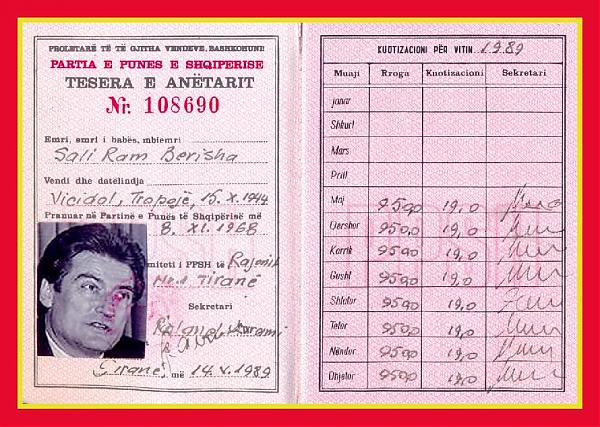 PROLETARË TË TË GJITHA VENDEVE, BASHKOHUNI!
PARTIA E PUNES E SHQIPERISE
TESERA E ANËTARIT
Nr. 108690
Emri, emri i babës, mbiemri
Sali Ram Berisha
Vendi dhe datëlindja
Vicidol, Tropojë, 15.X.1944
Pranuar në Partinë e Punës të Shqipërisë më
8. XI. 1968
miteti i PPSH të Rajonit
Tiranë
Sekretari
Tiranë, më 14.X.1989
KUOTIZACIONI PËR VITIN 1989
Muaji Rroga Kuotizacioni Sekretari
janar
Shkurt
Mars
Prill
Maj 950,0 19,0
Qershor 950,0 19,0
Korrik 950,0 19,0
Gusht 950,0 19,0
Shtator 950,0 19,0
Tetor 950,0 19,0
Nëndor 950,0 19,0
Dhjetor 950,0 19,0